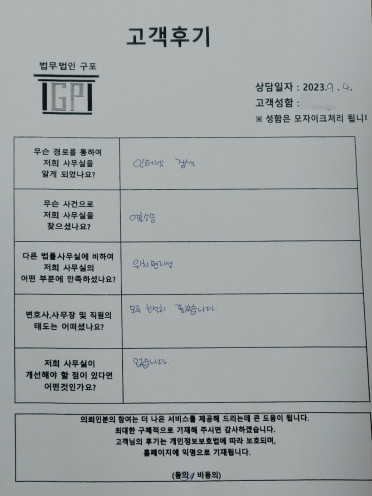 고객후기
법무법인 구포
GP
상담일자 : 2023. 9. 4.
고객성함 :
※ 성함은 모자이크처리 됩니
무슨 경로를 통하여
저희 사무실을
알게 되었나요?
인터넷 검색
무슨 사건으로
저희 사무실을
찾으셨나요?
다른 법률사무실에 비하여
저희 사무실의
어떤 부분에 만족하셨나요?
위치 편리성.
변호사,사무장 및 직원의
태도는 어떠셨나요?
모두 친절히
저희 사무실이
개선해야 할 점이 있다면
어떤것인가요?
없습니다.
의뢰인분의 참여는 더 나은 서비스를 제공해 드리는데 큰 도움이 됩니다.
최대한 구체적으로 기재해 주시면 감사하겠습니다.
고객님의 후기는 개인정보보호법에 따라 보호되며,
홈페이지에 익명으로 기재됩니다.
(동의 / 비동의)